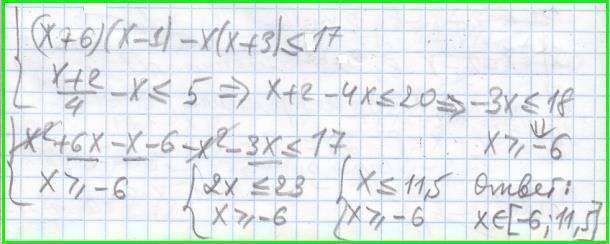 (x+6)(x-1) - x(x+3) ≤ 17
x+2/4 - x ≤ 5 ⇒ x+2-4x ≤ 20 ⇒ -3x ≤ 18
x²+6x-x-6-x²-3x ≤ 17 x ≥ -6
x ≥ -6 2x ≤ 23 x ≤ 11,5 Ответ:
x ≥ -6 x ≥ -6 x∈[-6; 11,5]